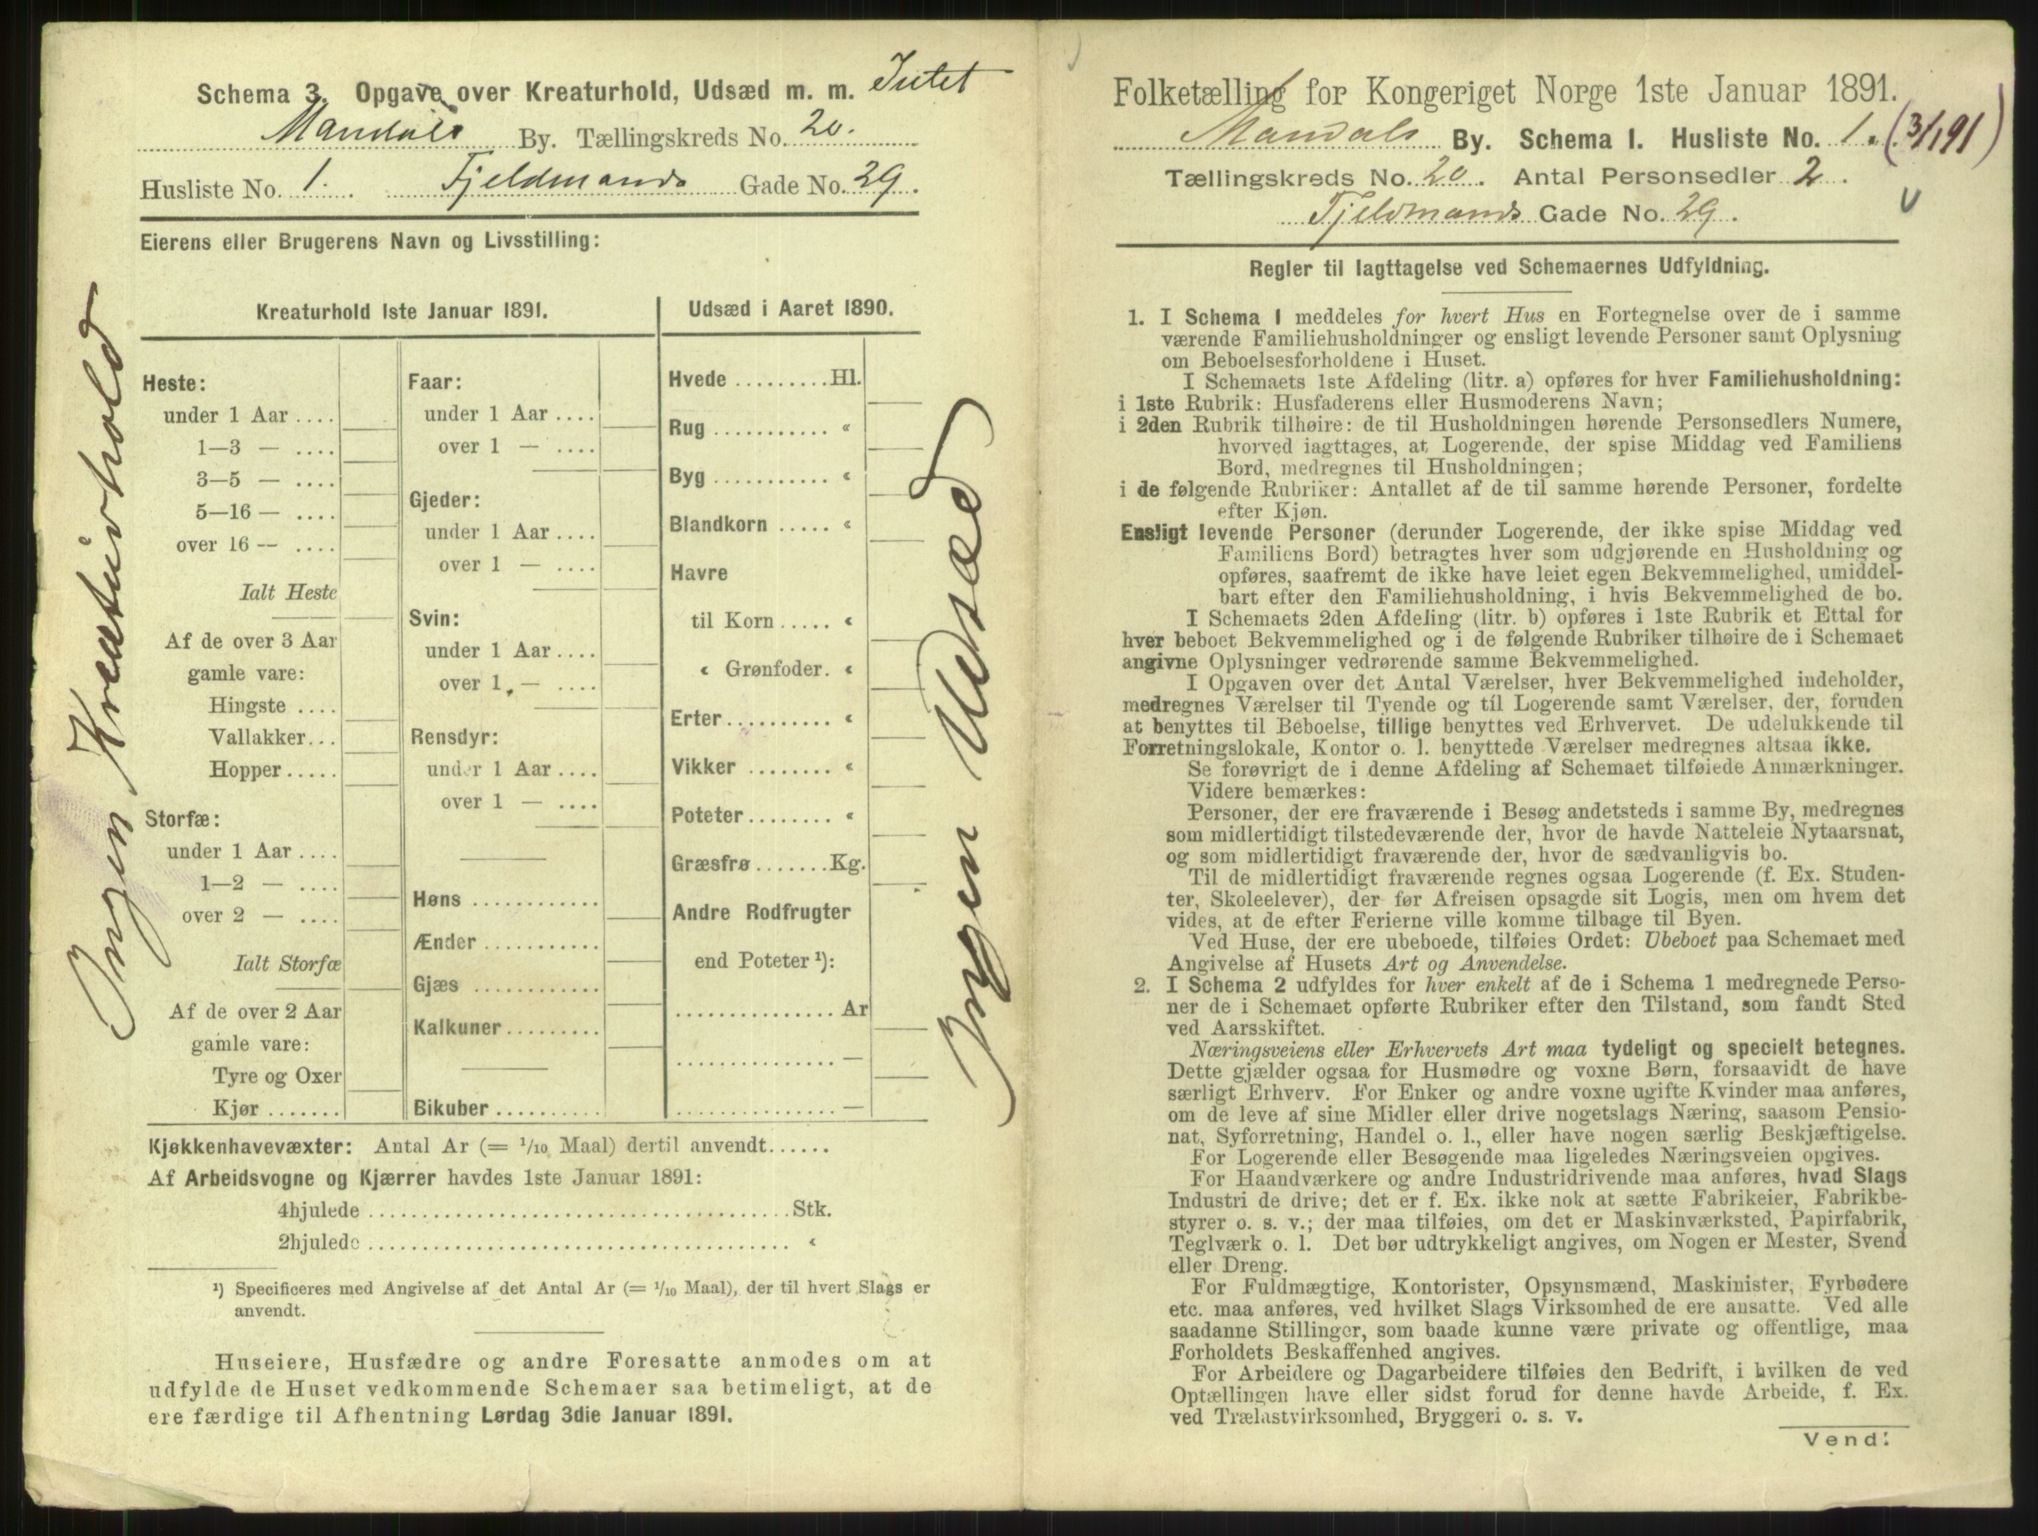 Schema 3. Opgave over Kreaturhold, Udsæd m. m. Intet
Mandals By. Tællingskreds No. 20.
Husliste No. 1. Fjeldmands Gade No. 29.
Eierens eller Brugerens Navn og Livsstilling:
Kreaturhold 1ste Januar 1891.
Heste:
under 1 Aar ....
1—3 — ....
3—5 — ....
5—16 — ....
over 16 — ....
Ialt Heste
Af de over 3 Aar
gamle vare:
Hingste ....
Vallakker...
Hopper.....
Storfæ:
under 1 Aar ....
1—2 — ....
over 2 — ....
Ialt Storfæ
Af de over 2 Aar
gamle vare:
Tyre og Oxer
Kjør .......
Faar:
under 1 Aar ....
over 1 — ....
Gjeder:
under 1 Aar ....
over 1 — ....
Svin:
under 1 Aar ....
over 1 — ....
Rensdyr:
under 1 Aar ....
over 1 — ....
Høns ............
Ænder ...........
Gjæs ............
Kalkuner.........
Bikuber ..........
Udsæd i Aaret 1890.
Hvede .........Hl.
Rug ........... «
Byg ........... «
Blandkorn ..... «
Havre
til Korn ..... «
« Grønfoder. «
Erter.......... «
Vikker ........ «
Poteter........ «
Græsfrø .......Kg.
Andre Rodfrugter
end Poteter ¹):
............... Ar
............... —
............... —
Ingen Kreaturhold
Ingen Udsæd
Kjøkkenhavevæxter: Antal Ar (= 1/10 Maal) dertil anvendt......
Af Arbeidsvogne og Kjærrer havdes 1ste Januar 1891:
4hjulede ....................................... Stk.
2hjulede ....................................... «
¹) Specificeres med Angivelse af det Antal Ar (= 1/10 Maal), der til hvert Slags er
anvendt.
Huseiere, Husfædre og andre Foresatte anmodes om at
udfylde de Huset vedkommende Schemaer saa betimeligt, at de
ere færdige til Afhentning Lørdag 3die Januar 1891.
Folketælling for Kongeriget Norge 1ste Januar 1891.
Mandals By. Schema 1. Husliste No. 1. (3/1 91)
Tællingskreds No. 20. Antal Personsedler 2.
Fjeldmands Gade No. 29.
Regler til Iagttagelse ved Schemaernes Udfyldning.
1. I Schema 1 meddeles for hvert Hus en Fortegnelse over de i samme
værende Familiehusholdninger og ensligt levende Personer samt Oplysning
om Beboelsesforholdene i Huset.
I Schemaets 1ste Afdeling (litr. a) opføres for hver Familiehusholdning:
i 1ste Rubrik: Husfaderens eller Husmoderens Navn;
i 2den Rubrik tilhøire: de til Husholdningen hørende Personsedlers Numere,
hvorved iagttages, at Logerende, der spise Middag ved Familiens
Bord, medregnes til Husholdningen;
i de følgende Rubriker: Antallet af de til samme hørende Personer, fordelte
efter Kjøn.
Ensligt levende Personer (derunder Logerende, der ikke spise Middag ved
Familiens Bord) betragtes hver som udgjørende en Husholdning og
opføres, saafremt de ikke have leiet egen Bekvemmelighed, umiddel-
bart efter den Familiehusholdning, i hvis Bekvemmelighed de bo.
I Schemaets 2den Afdeling (litr. b) opføres i 1ste Rubrik et Ettal for
hver beboet Bekvemmelighed og i de følgende Rubriker tilhøire de i Schemaet
angivne Oplysninger vedrørende samme Bekvemmelighed.
I Opgaven over det Antal Værelser, hver Bekvemmelighed indeholder,
medregnes Værelser til Tyende og til Logerende samt Værelser, der, foruden
at benyttes til Beboelse, tillige benyttes ved Erhvervet. De udelukkende til
Forretningslokale, Kontor o. l. benyttede Værelser medregnes altsaa ikke.
Se forøvrigt de i denne Afdeling af Schemaet tilføiede Anmærkninger.
Videre bemærkes:
Personer, der ere fraværende i Besøg andetsteds i samme By, medregnes
som midlertidigt tilstedeværende der, hvor de havde Natteleie Nytaarsnat,
og som midlertidigt fraværende der, hvor de sædvanligvis bo.
Til de midlertidigt fraværende regnes ogsaa Logerende (f. Ex. Studen-
ter, Skoleelever), der før Afreisen opsagde sit Logis, men om hvem det
vides, at de efter Ferierne ville komme tilbage til Byen.
Ved Huse, der ere ubeboede, tilføies Ordet: Ubeboet paa Schemaet med
Angivelse af Husets Art og Anvendelse.
2. I Schema 2 udfyldes for hver enkelt af de i Schema 1 medregnede Perso-
ner de i Schemaet opførte Rubriker efter den Tilstand, som fandt Sted
ved Aarsskiftet.
Næringsveiens eller Erhvervets Art maa tydeligt og specielt betegnes.
Dette gjælder ogsaa for Husmødre og voxne Børn, forsaavidt de have
særligt Erhverv. For Enker og andre voxne ugifte Kvinder maa anføres,
om de leve af sine Midler eller drive nogetslags Næring, saasom Pensio-
nat, Syforretning, Handel o. l., eller have nogen særlig Beskjæftigelse.
For Logerende eller Besøgende maa ligeledes Næringsveien opgives.
For Haandværkere og andre Industridrivende maa anføres, hvad Slags
Industri de drive; det er f. Ex. ikke nok at sætte Fabrikeier, Fabrikbe-
styrer o. s. v.; der maa tilføies, om det er Maskinværksted, Papirfabrik,
Teglværk o. l. Det bør udtrykkeligt angives, om Nogen er Mester, Svend
eller Dreng.
For Fuldmægtige, Kontorister, Opsynsmænd, Maskinister, Fyrbødere
etc. maa anføres, ved hvilket Slags Virksomhed de ere ansatte. Ved alle
saadanne Stillinger, som baade kunne være private og offentlige, maa
Forholdets Beskaffenhed angives.
For Arbeidere og Dagarbeidere tilføies den Bedrift, i hvilken de ved
Optællingen have eller sidst forud for denne havde Arbeide, f. Ex.
ved Trælastvirksomhed, Bryggeri o. s. v.
Vend!